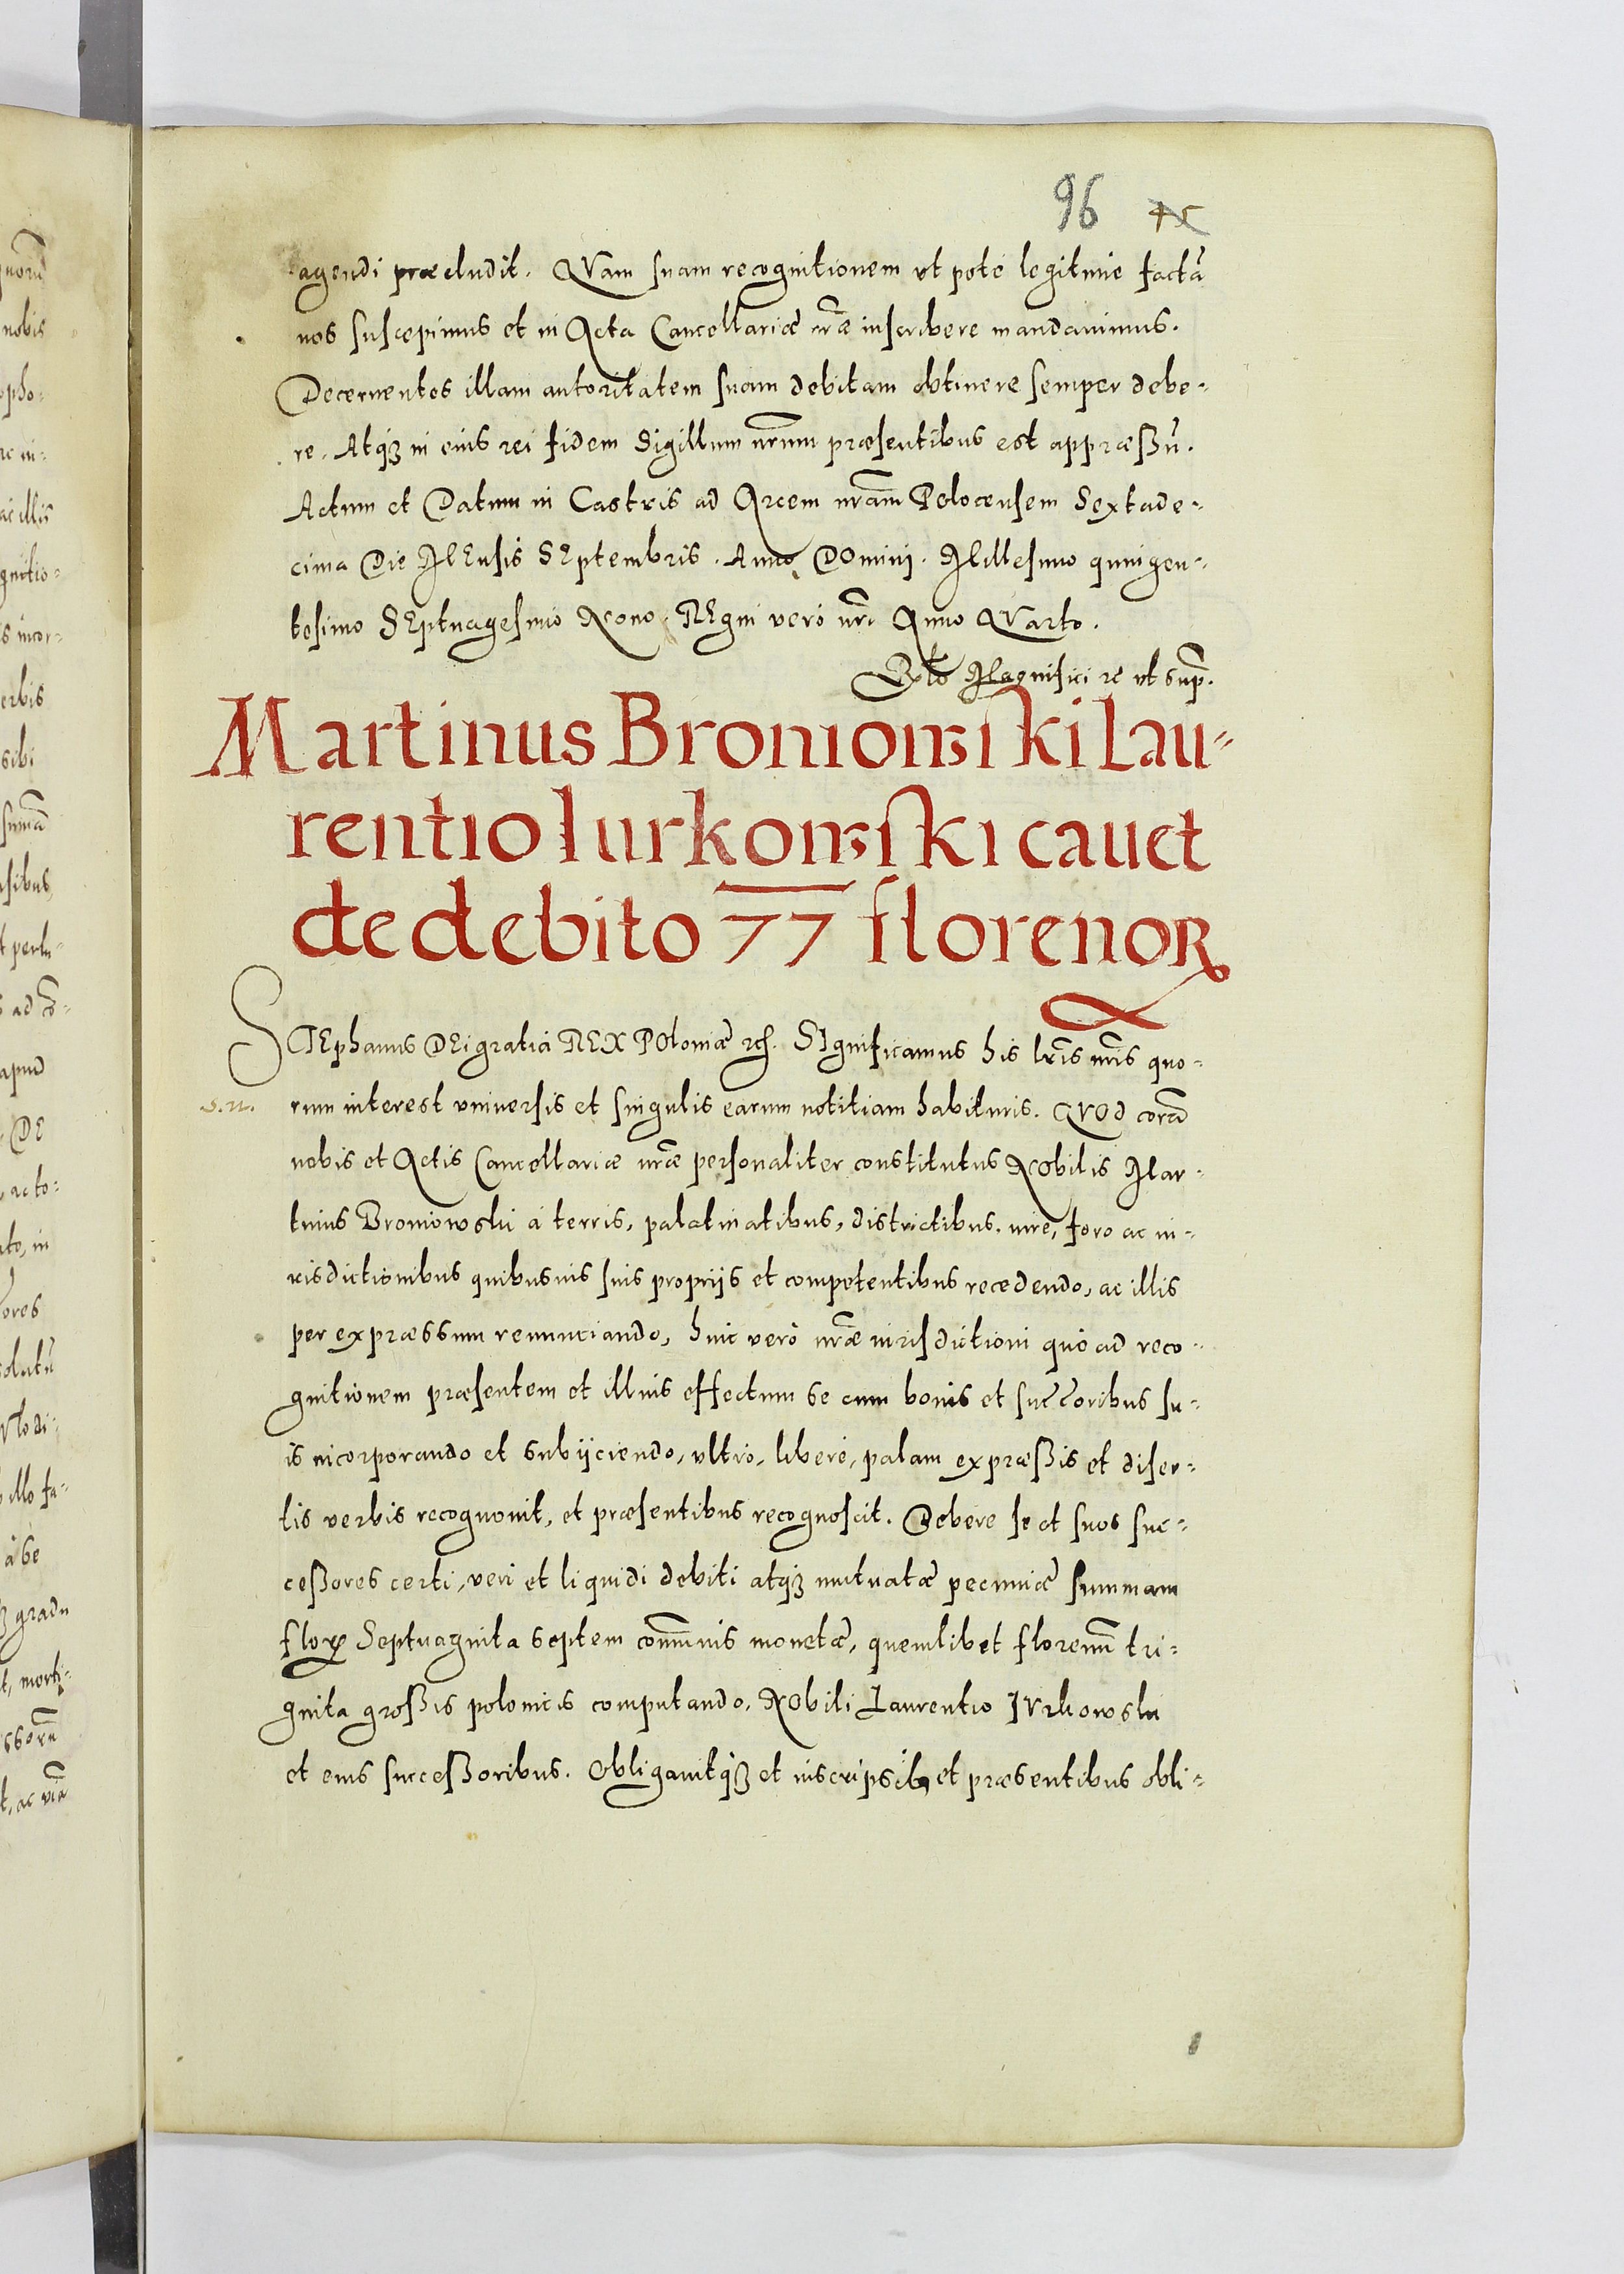 96
agendi præcludit. QVam suam recognitionem ut poté legitimè factã
nos suscepimus et in Acta Cancellariæ nr̃æ inscribere mandavimus.
Decernentes illam autoritatem suam debitam obtinere semper debe-
re. Atq₃ in eius rei fidem Sigillum nr̃um præsentibus est appræßũ.
Actum et Datum in Castris ad Arcem nr̃am Polocensem Sextade-
cima Die MEnsis SEptembris. Anno DOmini. Millesimo quingen-
tesimo SEptuagesimo Nono. REgni verò nr̃i Anno QVarto.
Rlõ Magnifici zc ut sup̃.
Martinus Broniowski Lau-
rentio Iurkowski cauet
de debito 77 florenoꝝ
STEphanus DEi gratia REX POloniæ zcͣ. SIgnificamus his lr̃is nr̃is quo-
s.n.
rum interest vniuersis et singulis earum notitiam habituris. QVOd corã
nobis et Actis Cancellariæ nr̃æ personaliter constitutus NObilis Mar-
tinus Broniowski à terris, palatinatibus, districtibus. iure, foro ac iu-
risdictionibus quibusuis suis proprijs et competentibus recedendo, ac illis
per expræssum renunciando, huic verò nr̃æ iurisdictioni quò ad reco-
gnitionem præsentem et illius effectum se cum bonis et succ̃oribus su-
is incorporando et subijciendo, vltrò, liberè, palam expræßis et diser-
tis verbis recognouit, et præsentibus recognoscit. Debere se et suos suc-
ceßores certi, veri et liquidi debiti atq₃ mutuatæ pecuniæ summam
floꝝ Septuaginta septem com̃unis monetæ, quemlibet florenũ tri-
ginta großis polonicis computando. NObili Laurentio IVrkowski
et eius succeßoribus. Obligauitq₃ et inscripsit, et præsentibus obli-